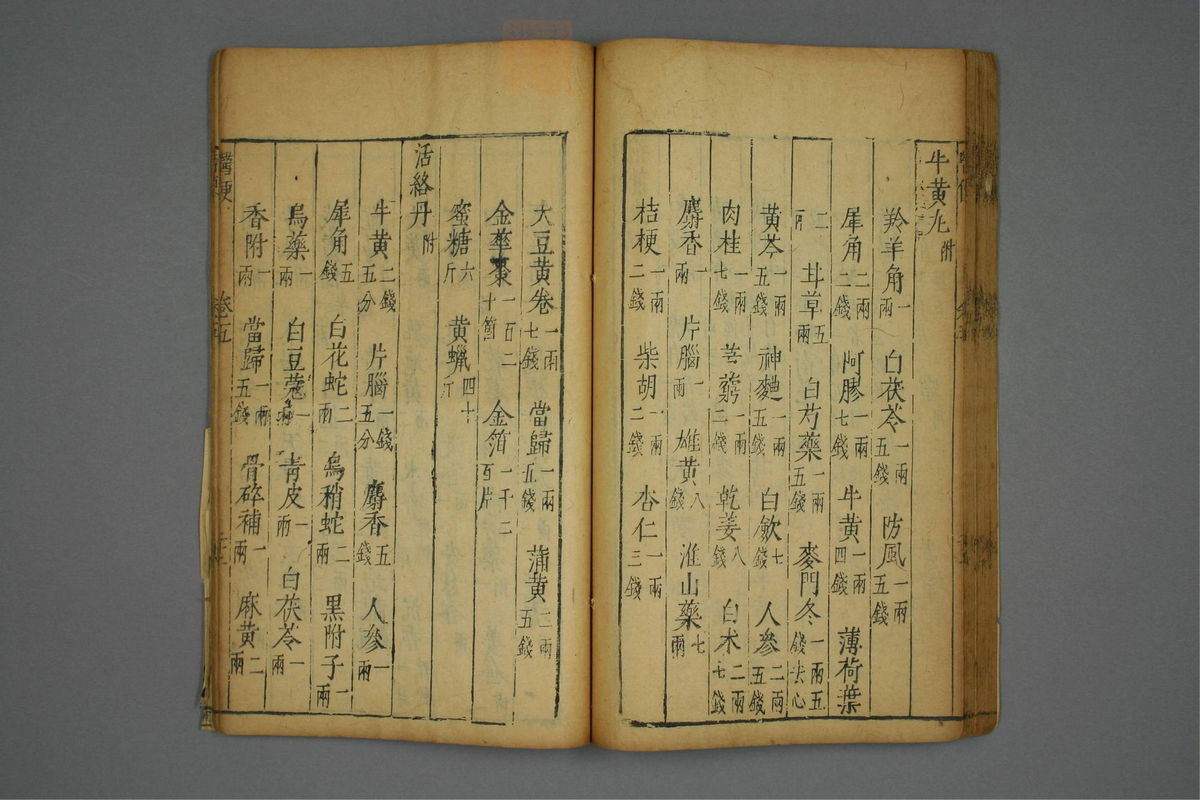 牛黃丸附
羚羊角一兩 白茯苓一兩五錢 防風一兩五錢
犀角二兩二錢 阿膠一兩七錢 牛黃一兩四錢 薄荷葉
二兩 甘草五兩 白芍藥一兩五錢 麥門冬一兩五錢去心
黃芩一兩五錢 神麯一兩五錢 白歛七錢 人參二兩五錢
肉桂一兩七錢 芎藭一兩二錢 乾姜八錢 白朮二兩七錢
麝香一兩 片腦一兩 雄黃八錢 淮山藥七兩
桔梗一兩二錢 柴胡一兩二錢 杏仁一兩三錢
大豆黃卷一兩七錢 當歸一兩五錢 蒲黃二兩五錢
金華棗一百二十箇 金箔一千二百片
蜜糖六斤 黃蠟四十
活絡丹附
牛黃二錢五分 片腦一錢五分 麝香五錢 人參一兩
犀角五錢 白花蛇二兩 烏稍蛇二兩 黑附子一兩
烏藥一兩 白豆蔻一兩 青皮一兩 白茯苓一兩
香附一兩 當歸一兩五錢 骨碎補一兩 麻黃二兩
卷五